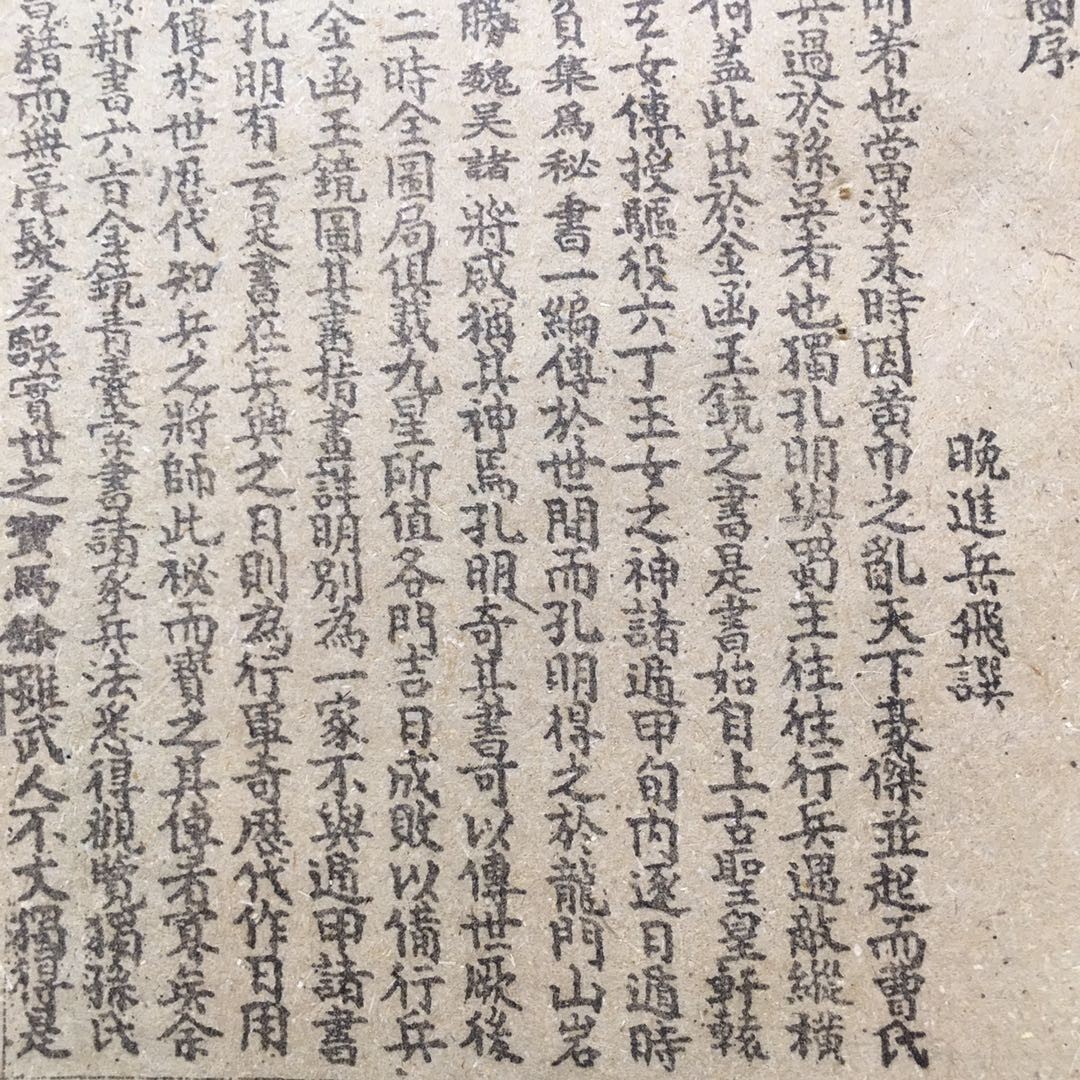 圖序
晚進岳飛譔
而著也當漢末時因黃巾之亂天下豪傑並起而曹氏
兵過於孫吳者也獨孔明與蜀主往往行兵遇敵縱橫
何蓋此出於金函玉鏡之書是書始自上古聖皇軒轅
玄女傳授驅役六丁玉女之神諸遁甲旬內逐日遁時
負集爲秘書一編傳於世間而孔明得之於龍門山岩
勝魏吳諸將咸稱其神焉孔明奇其書可以傳世厥後
二時全圖局俱載九星所值各門吉日成敗以備行兵
金函玉鏡圖其書指畫詳明別為一家不與遁甲諸書
孔明有云是書在兵與之日則為行軍奇歷代作日用
傳於世歷代知兵之將師此秘而寶之其傳者寡兵余
新書六百金鏡青囊等書諸家兵法悉得觀覽獨孫氏
籍而無毫髮差誤實世之寶焉餘雖武人不大獨得是